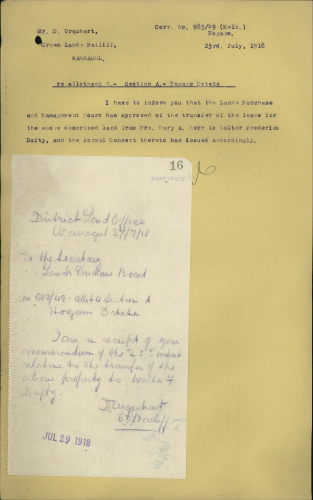 Corr. No. 983/49 (Melb.)
Mr. D. Urquhart,
Crown Lands Bailiff,
WARRAGUL.
23rd. July, 1918
re allotment 4.- Section A.-
Estate
I have to inform you that the Lands Purchase
and Management Board has approved of the transfer of the lease for
the above described land from Mrs. Mary A. Kerr to Walter Frederick
Dufty, and the Formal Consent thereto has issued accordingly.
16
Secretary
District Land Office
Warragul 27/7/18
To the Secretary
Lands Purchase Board
983/49 - Allot 4 Section A
Estate
I am in receipt of your
memorandum of the "23" instant
relative to the transfer of the
above property to Walter F
Dufty.
D Urquhart
C L Bailiff
JUL 29 1918